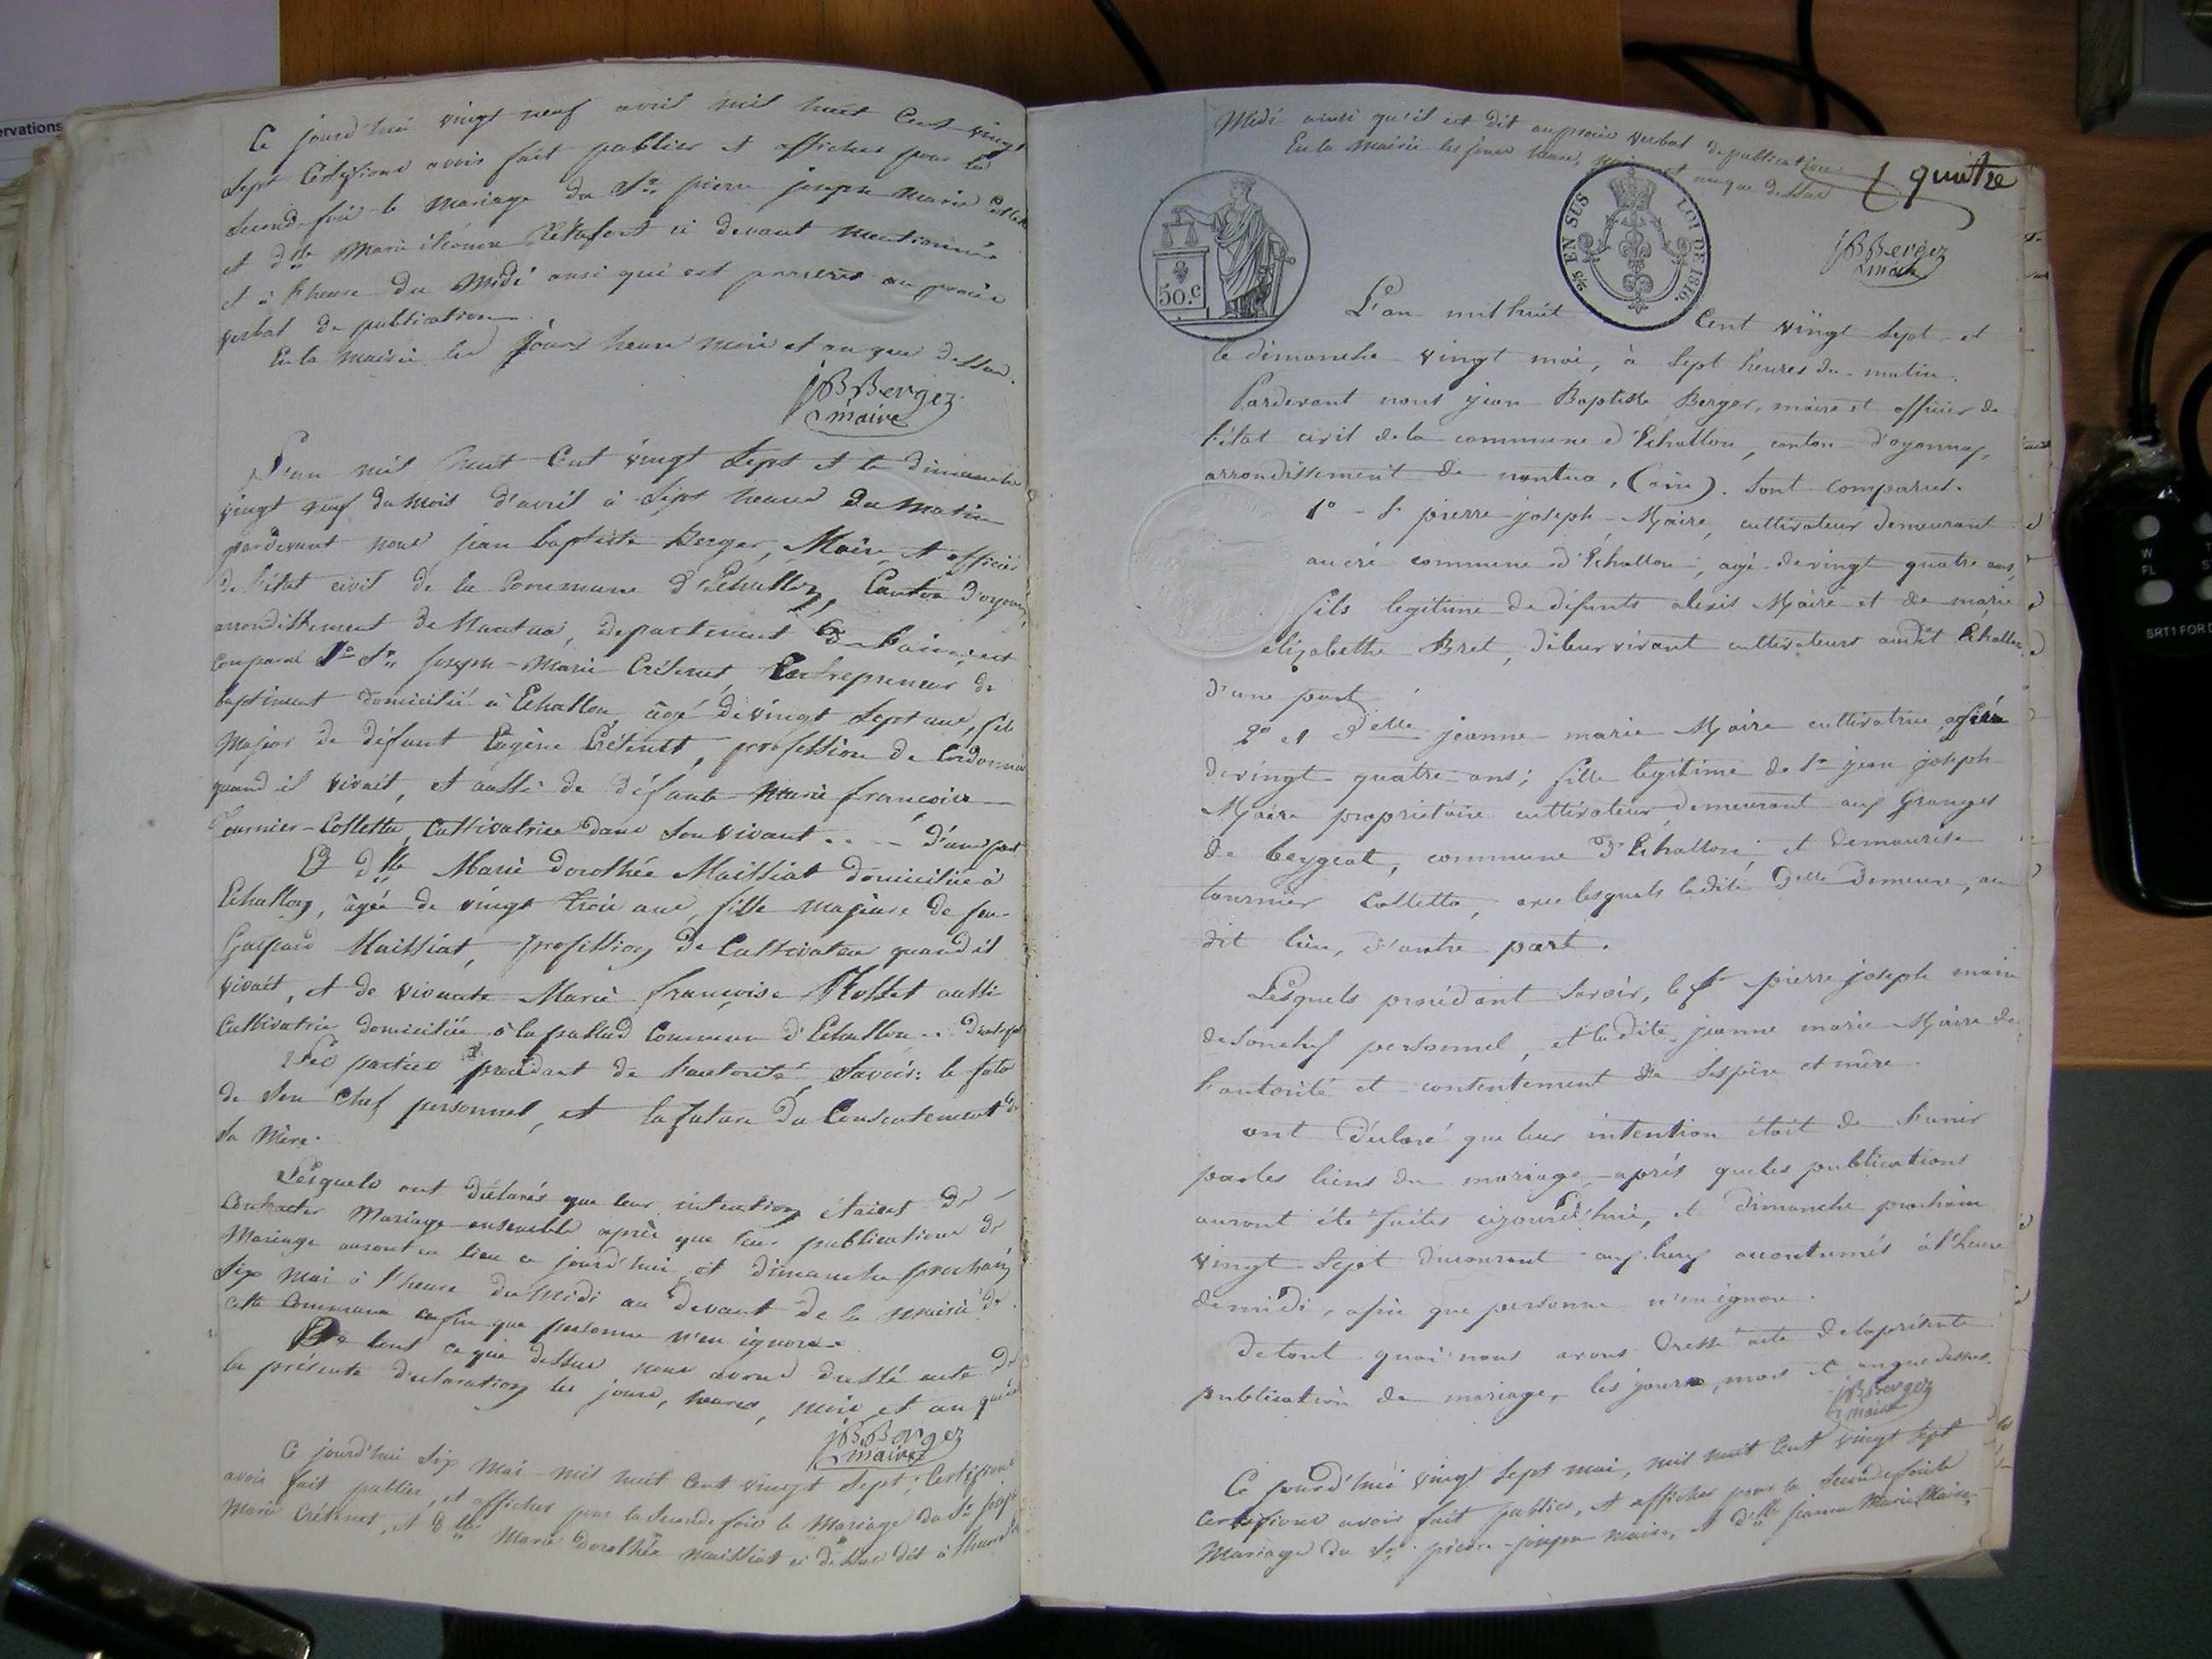 ervations
Ce jourd'hui vingt neuf avril mil huit Cent vingt
Sept Certifions avoir fait publier et afficher pour la
Seconde fois le Mariage du Sr. pierre joseph Marie
et dlle Marie ci devant mentionnés
et à l'heure du Midi ainsi qui est au procès
verbal de publication.
En la Mairie les Jours heure mois et an que dessus.
JBBerger
maire
L'an mil huit Cent vingt Sept et le dimanche
vingt neuf du mois d'avril à Sept heures du Matin
pardevant nous jean baptiste Berger, Maire et officier
de l'état civil de la Commune d'Echallon, Canton d'oyonnax,
arrondissement de Nantua, departement de l'ain; est
Comparu 1o Sr. joseph-Marie Crétenet, Entrepreneur de
battiment domicilié à Echallon, âgé de vingt Sept ans, fils
Majeur de défunt Eugène Crétenet, profession de Cordonnier
quand il vivait, et aussi de défunte Marie françoise
Tournier-Colletta, Cultivatrice dans Son vivant .. — d'une part
Et dlle Marie dorothée Maissiat domiciliée à
Echallon, âgée de vingt trois ans, fille majeure de feu
Gaspard Maissiat, profession de Cultivateur quand il
vivait, et de vivante Marie françoise Rosset aussi
Cultivatrice domiciliée à lapallud Commune d'Echallon .. d'autre part
Les parties procédant de l'autorité Savoir: le futur
de Son Chef personnel, et la future du Consentement de
Sa Mère.
Lesquels ont déclarés que leur intention étaient de
Contracter Mariage ensemble après que leur publications de
Mariage auront eu lieu ce jourd'hui et dimanche prochain
Six mai à l'heure du Midi au devant de la mairie de
cette Commune enfin que personne n'en ignore.
De tout ce que dessus nous avons dressé acte de
la présente déclaration les jours, heures, mois et an que
JBBerger
maire
Ce jourd'hui Six Mai mil huit Cent vingt Sept; Certifions
avoir fait publier, et afficher pour la Seconde fois le Mariage du Sr joseph
Marie Crétenet, et dlle Marie dorothée Maissiat ci dessus dit à l'heure de
Midi ainsi qu'il est dit au procès verbal de publication.
En la Mairie les jours heure, mois et an que dessus
quatre
JBBerger
maire
50.C
EN SUS LOI DE 1816.
L'an mil huit Cent vingt Sept et
le dimanche vingt mai, à Sept heures du matin.
Pardevant nous jean Baptiste Berger, maire et officier de
l'état civil de la commune d'Echallon, canton d'oyonnax,
arrondissement de nantua, (ain). Sont comparus.
1o - Sr pierre joseph Maire, cultivateur demeurant
au cré commune d'Echallon, agé de vingt quatre ans,
fils legitime de défunts alexis Maire et de marie
elizabethe Bret, de leur vivant cultivateurs audit Echallon,
d'une part
2o et Delle jeanne-marie Maire cultivatrice, agée
de vingt-quatre ans; fille legitime de Sr jean joseph
Maire propriétaire cultivateur, demeurant aux Granges
de beygeat, commune d'Echallon, et
tournier Colletta, avec lesquels ladite Delle Demeure, au
dit lieu, d'autre part.
Lesquels procédant Savoir, le Sr pierre joseph maire
de Sonchef personnel, et ladite jeanne marie Maire de
l'autorité et contentement de Ses père et mère.
ont déclaré que leur intention étoit de S'unir
par les liens du mariage, après que les publications
auront été faites cejourd'hui, et Dimanche prochain
vingt Sept du courant aux lieux accoutumés à l'heure
de midi, afin que personne n'en ignore.
De tout quoi nous avons Dressé acte de la présente
publication de mariage, les jours, mois et an que dessus.
JBBerger
maire
Ce jourd'hui vingt Sept mai, mil huit Cent vingt Sept
Certifions avoir fait publier, et afficher pour la Seconde fois le
Mariage du Sr. pierre-joseph Maire, et dlle jeanne Marie Maire,
W
FL
SRT1 FOR